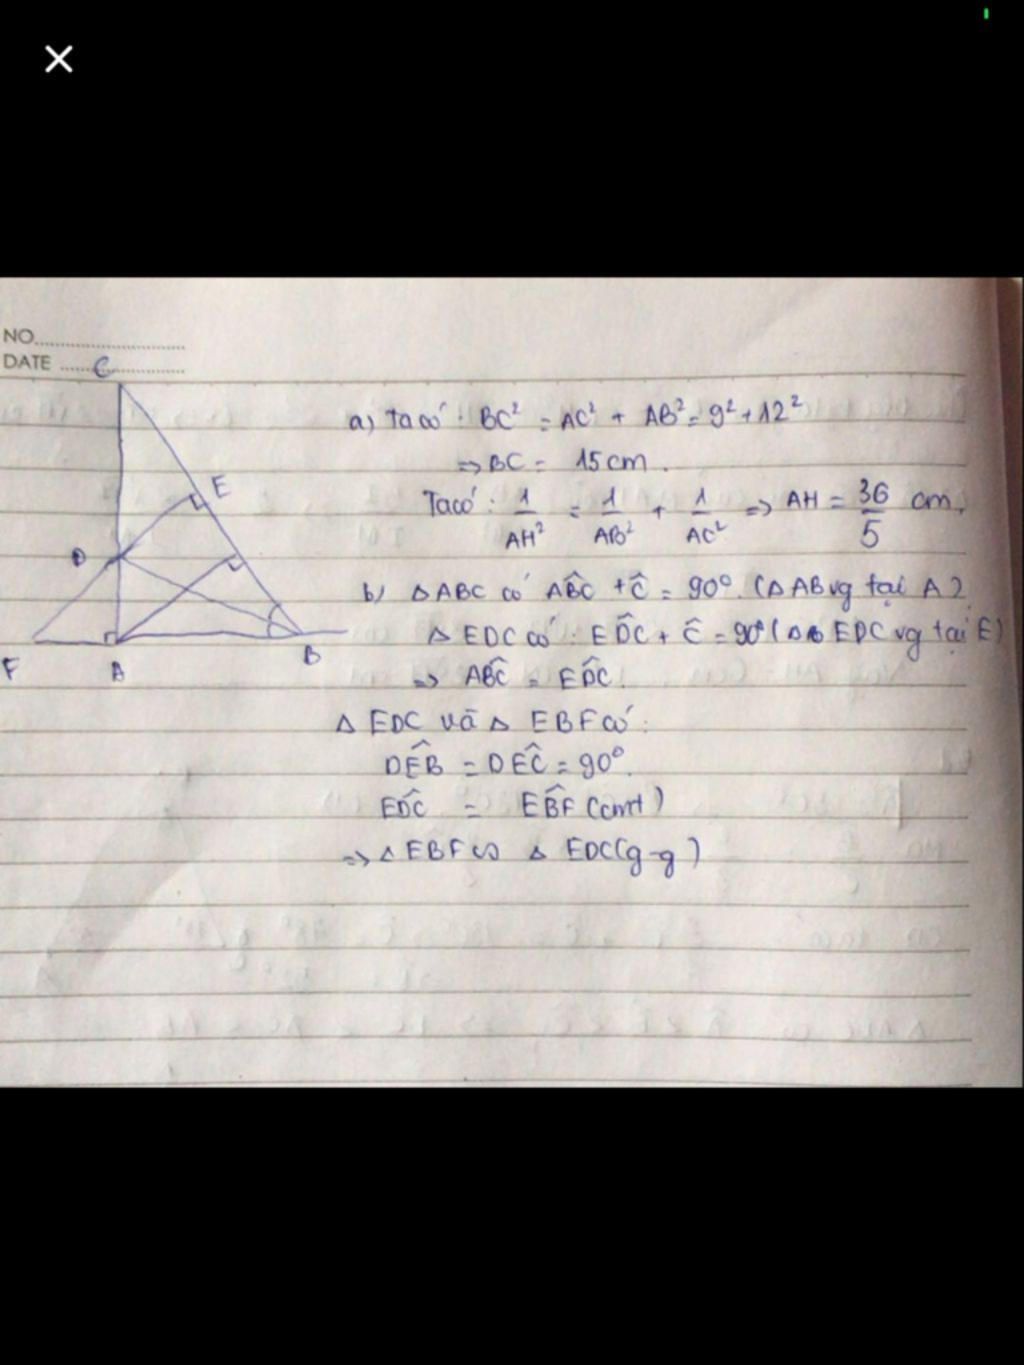 NO
DATE
C
a) Ta có: BC² = AC² + AB² = 9² + 12²
=> BC = 15 cm.
E
Ta có: 1/AH² = 1/AB² + 1/AC² => AH = 36/5 cm.
D
b) Δ ABC có ABC^ + C^ = 90°. (Δ AB vg tại A)
Δ EDC có: EDC^ + C^ = 90° (Δ EDC vg tại E)
F A B
=> ABC^ = EDC^.
Δ EDC và Δ EBF có:
DEB^ = DEC^ = 90°.
EDC^ = EBF^ (cmt)
=> Δ EBF ∽ Δ EDC (g-g)